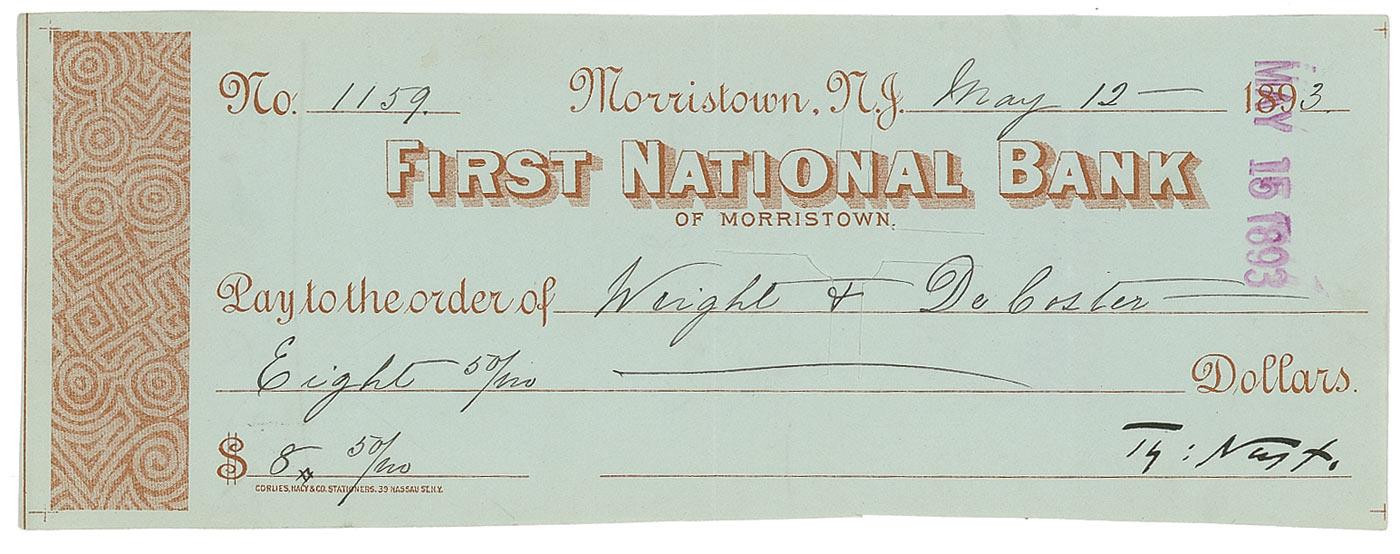 No. 1159. Morristown, N.J. May 12 — 1893.
FIRST NATIONAL BANK
OF MORRISTOWN.
Pay to the order of Wright & De Coster
Eight 50/100 Dollars.
$ 8 50/100
Th: Nast.
CORLIES, MACY & CO. STATIONERS. 39 NASSAU ST. N.Y.
MAY 15 1893